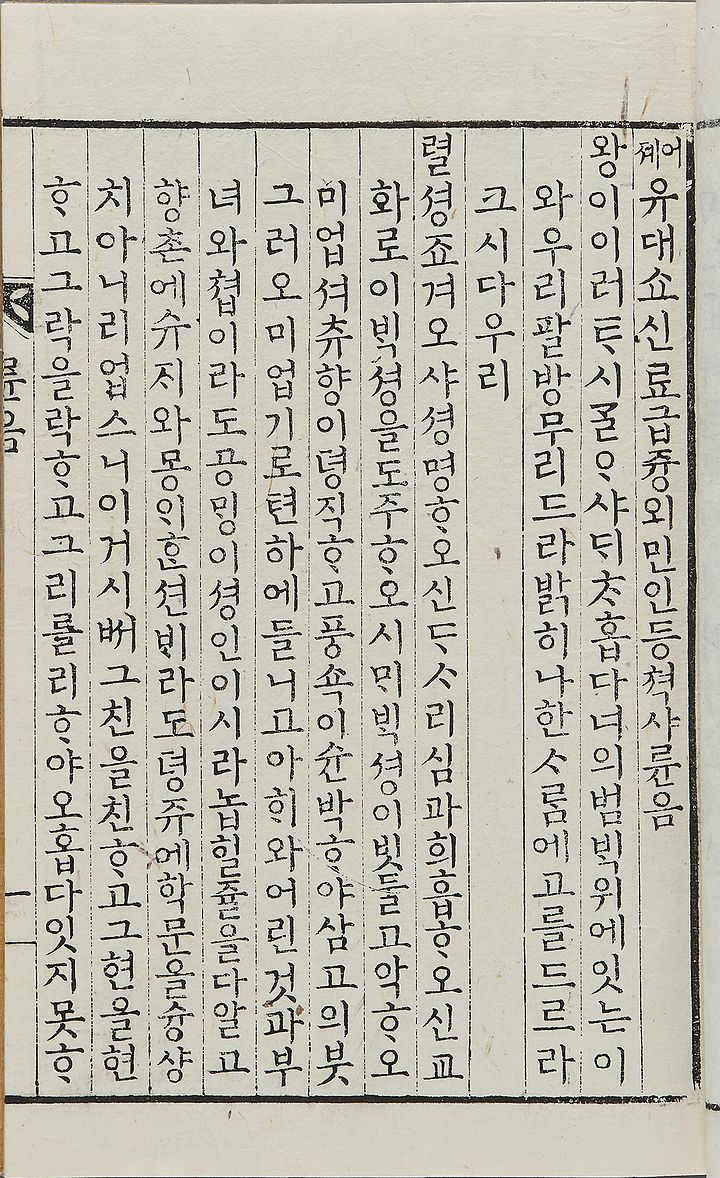 어졔유대쇼신료급즁외민인등쳑샤륜음
왕이이러ᄐᆞ시ᄀᆞᆯᄋᆞ샤ᄃᆡ오흡다녀의범ᄇᆡᆨ위에잇는이
와우리팔방무리드라밝히나한ᄉᆞ룸에고를드르라
크시다우리
렬셩죠겨오샤셩명ᄒᆞ오신ᄃᆞᄉᆞ리심과희흡ᄒᆞ오신교
화로이ᄇᆡᆨ셩을도주ᄒᆞ오시ᄆᆡᄇᆡᆨ셩이빗들고악ᄒᆞ오
미업셔츄향이뎡직ᄒᆞ고풍쇽이슌박ᄒᆞ야삼고의붓
그러오미업기로텬하에들니고아ᄒᆡ와어린것과부
녀와쳡이라도공밍이셩인이시라놉힐쥴을다알고
향촌에슈ᄌᆡ와몽ᄆᆡᄒᆞᆫ션ᄇᆡ라도뎡쥬에학문을슝샹
치아니리업스니이거시ᄡᅥ그친을친ᄒᆞ고그현을현
ᄒᆞ고그락을락ᄒᆞ고그리를리ᄒᆞ야오흡다잇지못ᄒᆞ
륜음
一